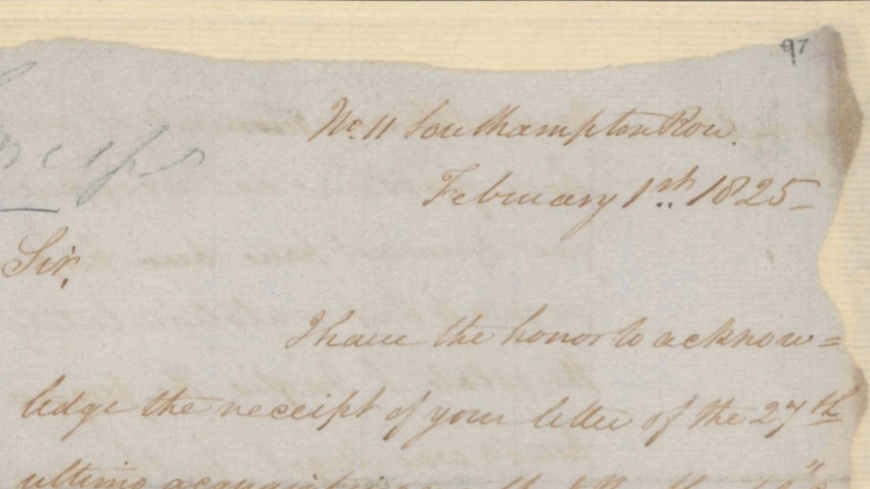 97
No. 11 Southampton Row.
February 1st. 1825
Sir,
I have the honor to acknow=
ledge the receipt of your letter of the 27th
ultimo